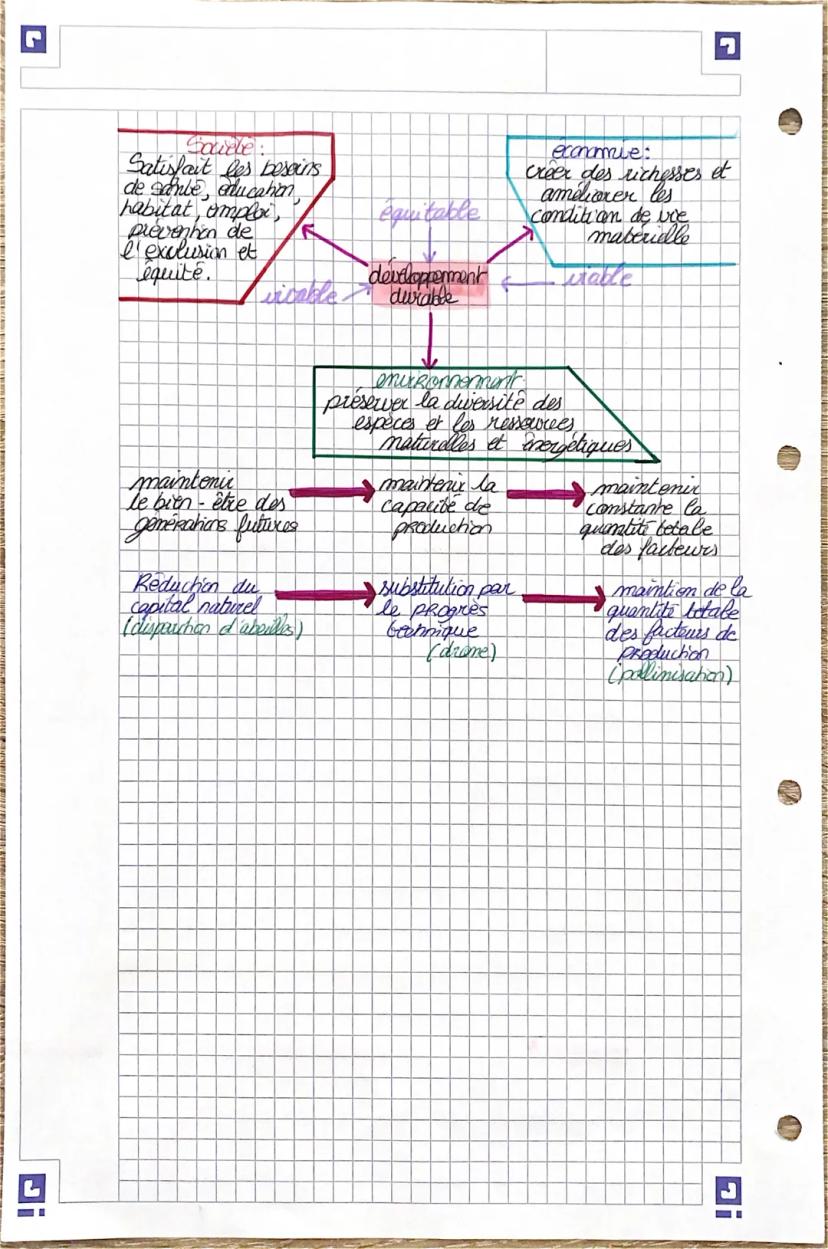 Société :
Satisfait les besoins
de santé, éducation,
habitat, emploi,
prévention de
l'exclusion et
équité.
économie :
créer des richesses et
améliorer les
condition de vie
matérielle
équitable
développement
durable
vivable
viable
environnement
préserver la diversité des
espèces et les ressources
naturelles et énergétiques
maintenir
le bien-être des
générations futures
maintenir la
capacité de
production
maintenir
constante la
quantité totale
des facteurs
Réduction du
capital naturel
(disparition d'abeilles)
substitution par
le progrès
technique
(drone)
maintien de la
quantité totale
des facteurs de
production
(pollinisation)